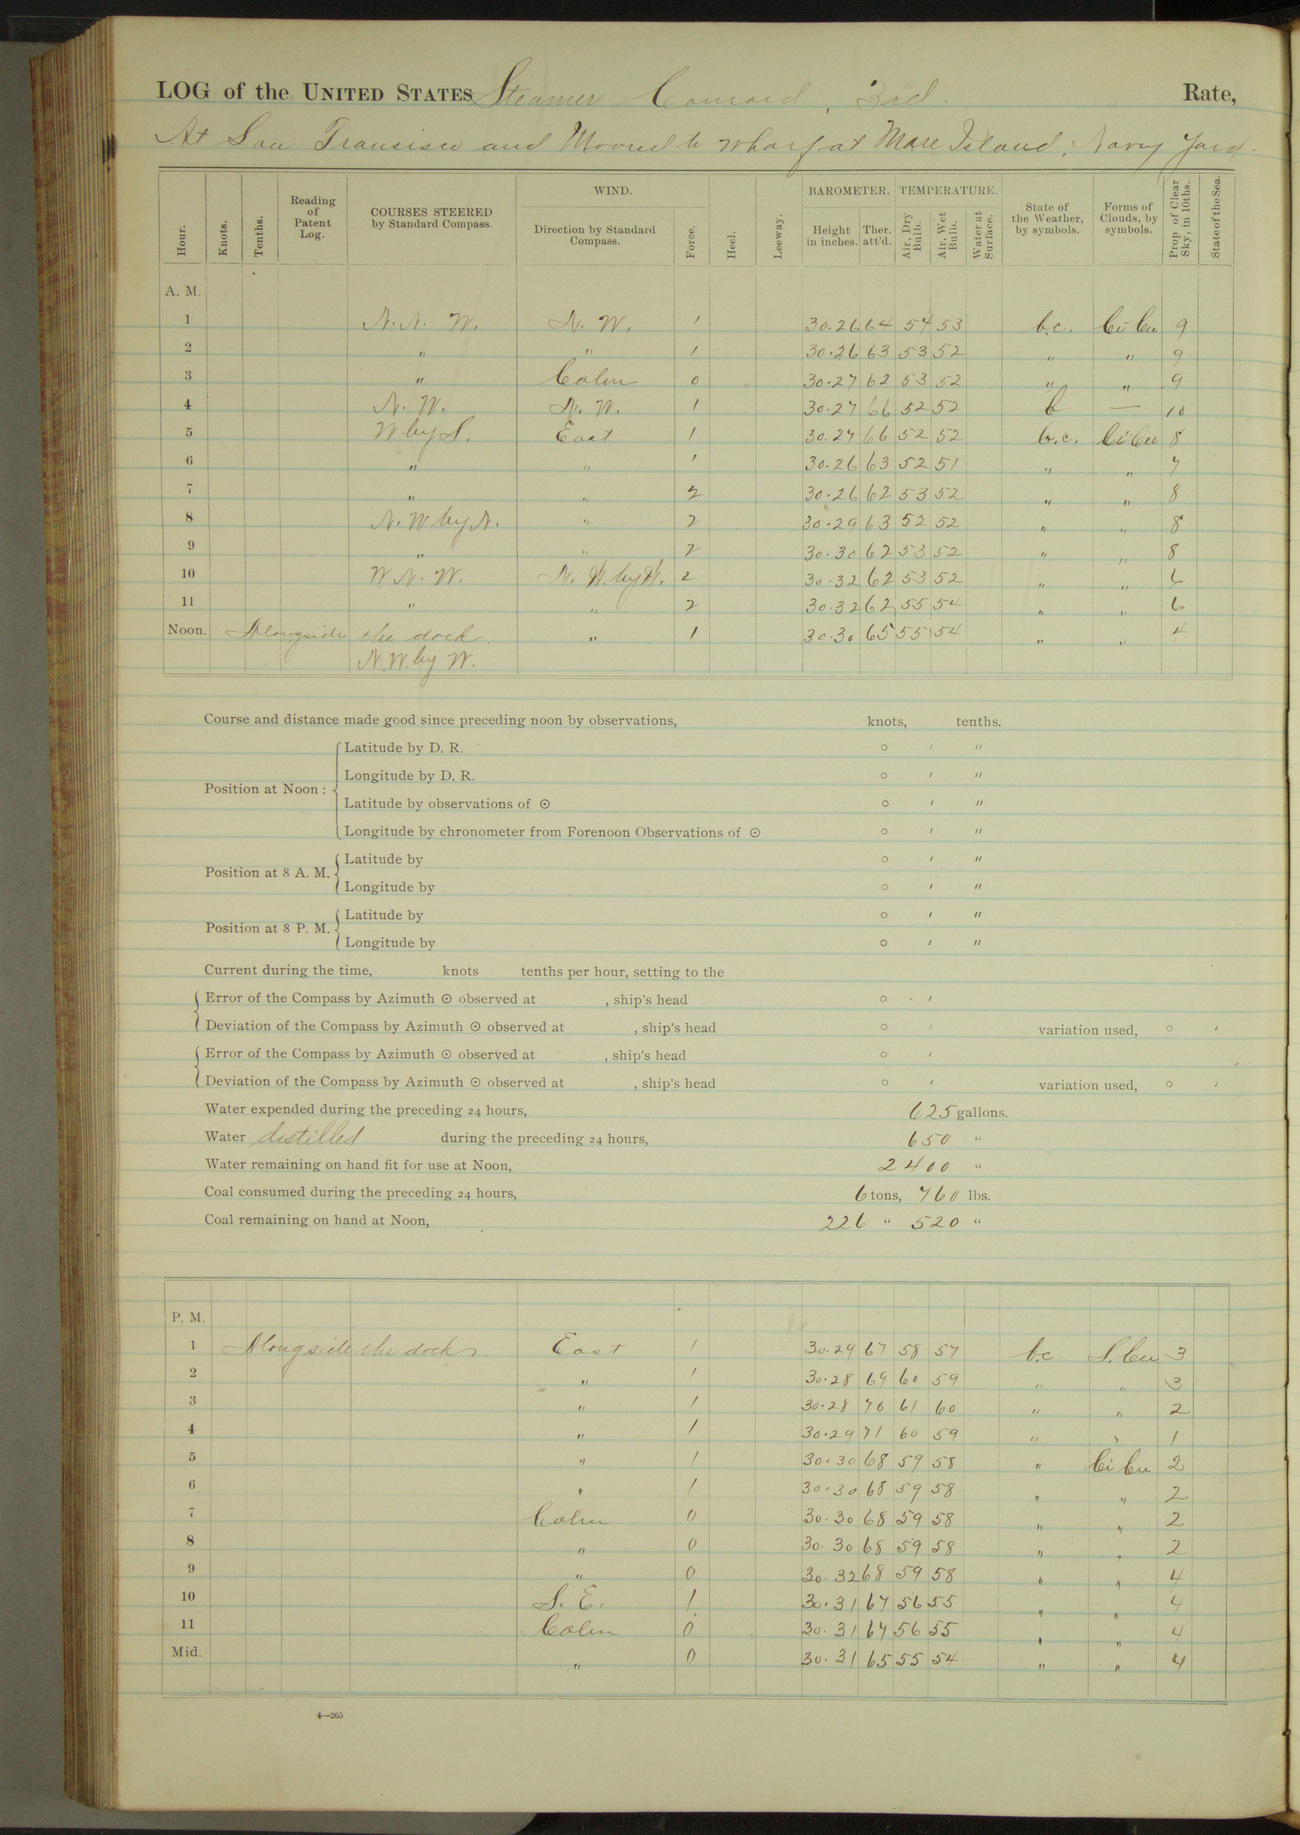 LOG of the UNITED STATES Steamer Concord, 3rd Rate,
At San Francisco and Moored to wharf at Mare Island, Navy Yard.
Hour. Knots. Tenths. Reading of Patent Log. COURSES STEERED by Standard Compass. WIND. Direction by Standard Compass. Force. Heel. Leeway. BAROMETER. Height in inches. Ther. att'd. TEMPERATURE. Air, Dry Bulb. Air, Wet Bulb. Water at Surface. State of the Weather, by symbols. Forms of Clouds, by symbols. Prop. of Clear Sky, in 10ths. State of the Sea.
A. M.
1 N.N. W. N. W. 1 30.26 64 54 53 b.c. Ci Cu 9
2 " " 1 30.26 63 53 52 " " 9
3 " Calm 0 30.27 62 53 52 " " 9
4 N. W. N. W. 1 30.27 66 52 52 b — 10
5 W by S. East 1 30.27 66 52 52 b.c. Ci Cu 8
6 " " 1 30.26 63 52 51 " " 7
7 " " 2 30.26 62 53 52 " " 8
8 N. W by N. " 2 30.29 63 52 52 " " 8
9 " " 2 30.30 62 53 52 " " 8
10 W N. W. N. W. by W. 2 30.32 62 53 52 " " 6
11 " " 2 30.32 62 55 54 " " 6
Noon. Alongside the dock. " 1 30.30 65 55 54 " " 4
N. W. by W.
Course and distance made good since preceding noon by observations, knots, tenths.
Position at Noon : Latitude by D. R. ° ′ ″
Longitude by D. R. ° ′ ″
Latitude by observations of ☉ ° ′ ″
Longitude by chronometer from Forenoon Observations of ☉ ° ′ ″
Position at 8 A. M. Latitude by ° ′ ″
Longitude by ° ′ ″
Position at 8 P. M. Latitude by ° ′ ″
Longitude by ° ′ ″
Current during the time, knots tenths per hour, setting to the
Error of the Compass by Azimuth ☉ observed at , ship's head ° ′
Deviation of the Compass by Azimuth ☉ observed at , ship's head ° ′ variation used, ° ′
Error of the Compass by Azimuth ☉ observed at , ship's head ° ′
Deviation of the Compass by Azimuth ☉ observed at , ship's head ° ′ variation used, ° ′
Water expended during the preceding 24 hours, 625 gallons.
Water distilled during the preceding 24 hours, 650 "
Water remaining on hand fit for use at Noon, 2400 "
Coal consumed during the preceding 24 hours, 6 tons, 760 lbs.
Coal remaining on hand at Noon, 226 " 520 "
P. M.
1 Alongside the dock East 1 30.29 67 58 57 b.c. S. Cu 3
2 " 1 30.28 69 60 59 " " 3
3 " 1 30.28 70 61 60 " " 2
4 " 1 30.29 71 60 59 " " 1
5 " 1 30.30 68 59 58 " Ci Cu 2
6 " 1 30.30 68 59 58 " " 2
7 Calm 0 30.30 68 59 58 " " 2
8 " 0 30.30 68 59 58 " " 2
9 " 0 30.32 68 59 58 " " 4
10 S. E. 1 30.31 67 56 55 " " 4
11 Calm 0 30.31 67 56 55 " " 4
Mid. " 0 30.31 65 55 54 " " 4
4—265